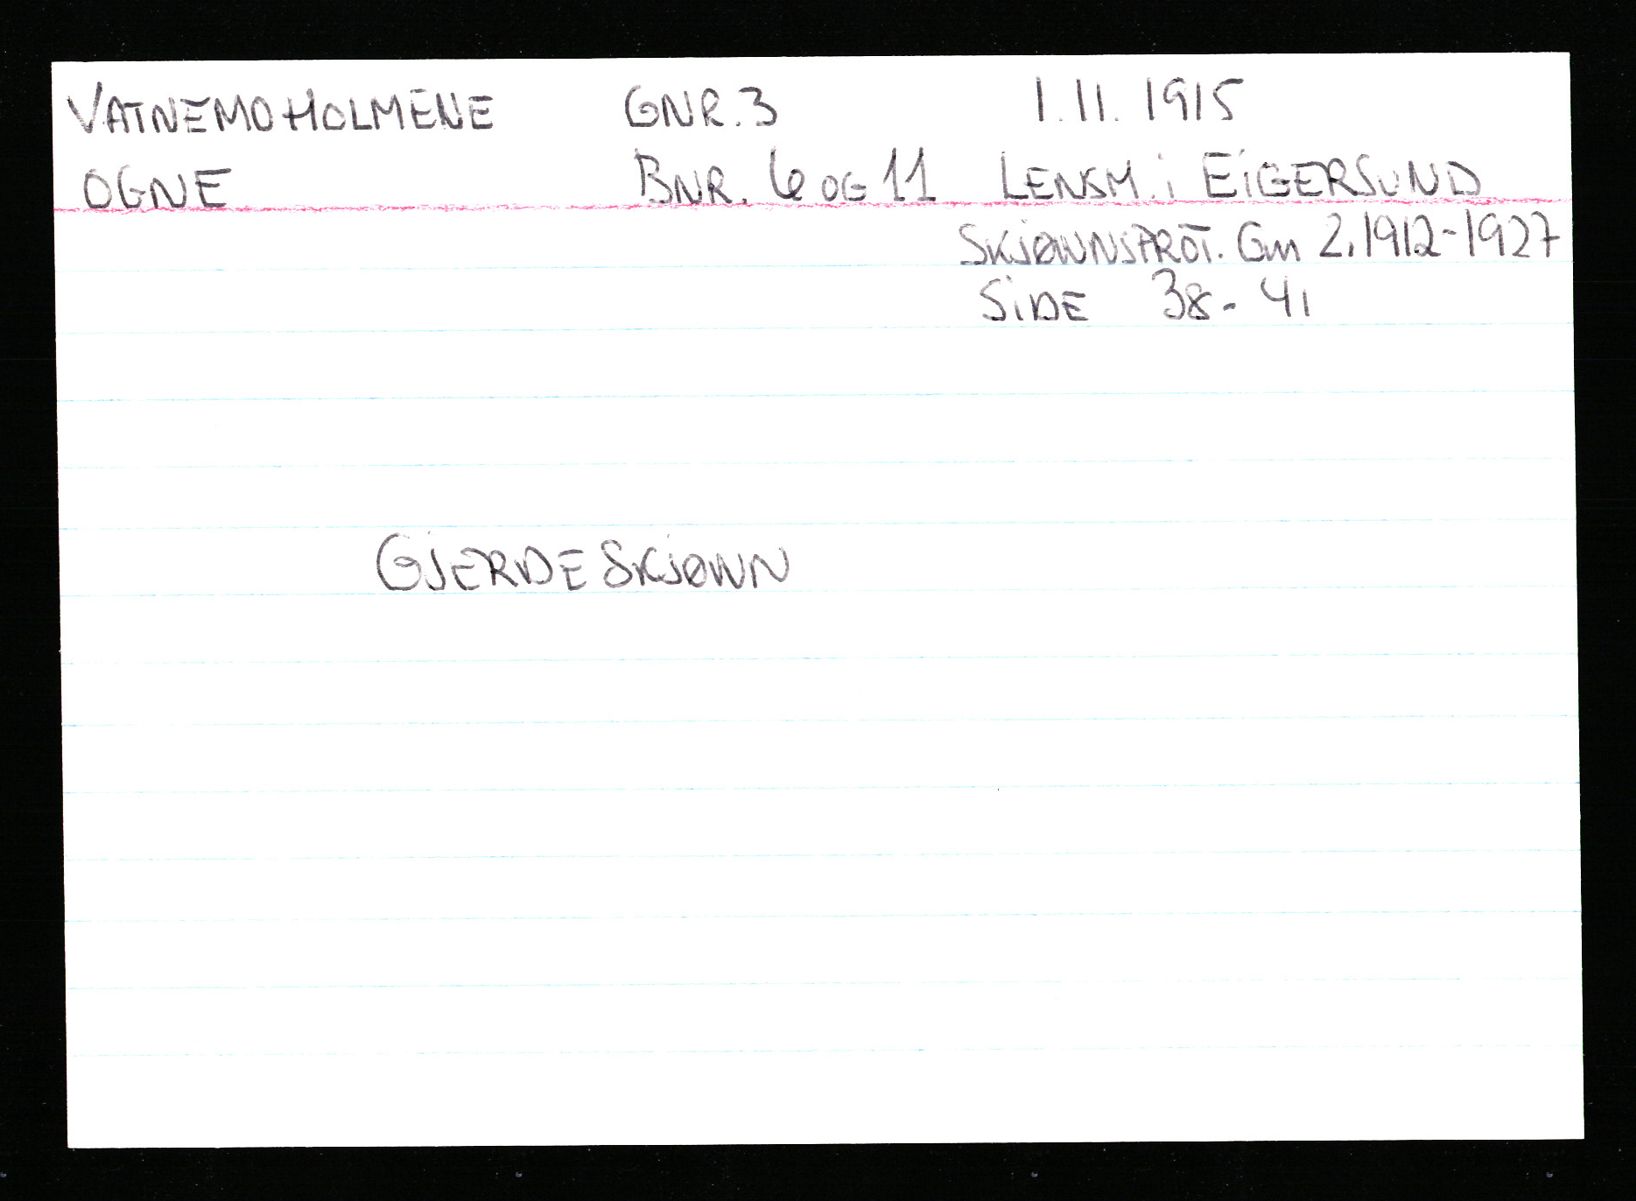 VATNEMOHOLMENE GNR. 3 1.11. 1915
OGNE BNR. 6 OG 11 LENSM. i EIGERSUND
SKJØNNSPROT. Gm 2, 1912-1927
SIDE 38 - 41
GJERDESKJØNN